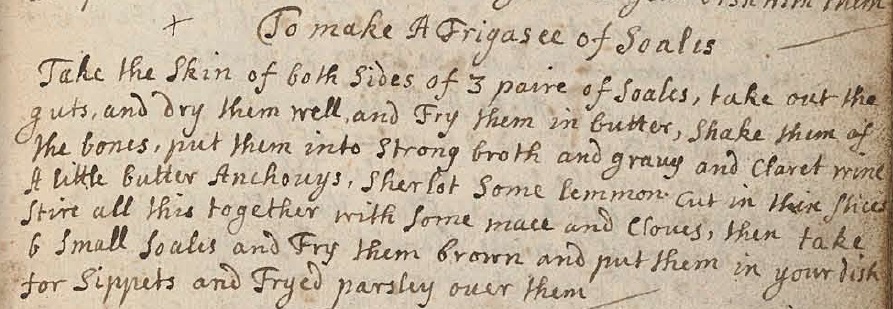 Dish him them
+ To make A Frigasee of Soales
Take the Skin of both Sides of 3 paire of Soales, take out the
guts, and dry them well, and Fry them in butter, Shake them of
the bones, put them into Strong broth and gravy and Claret wine
A little butter Anchovys, Sherlot Some lemmon Cut in thin slices
Stire all this together with Some mace and Cloves, then take
6 Small Soales and Fry them brown and put them in your dish
for Sippets and Fryed parsley over them